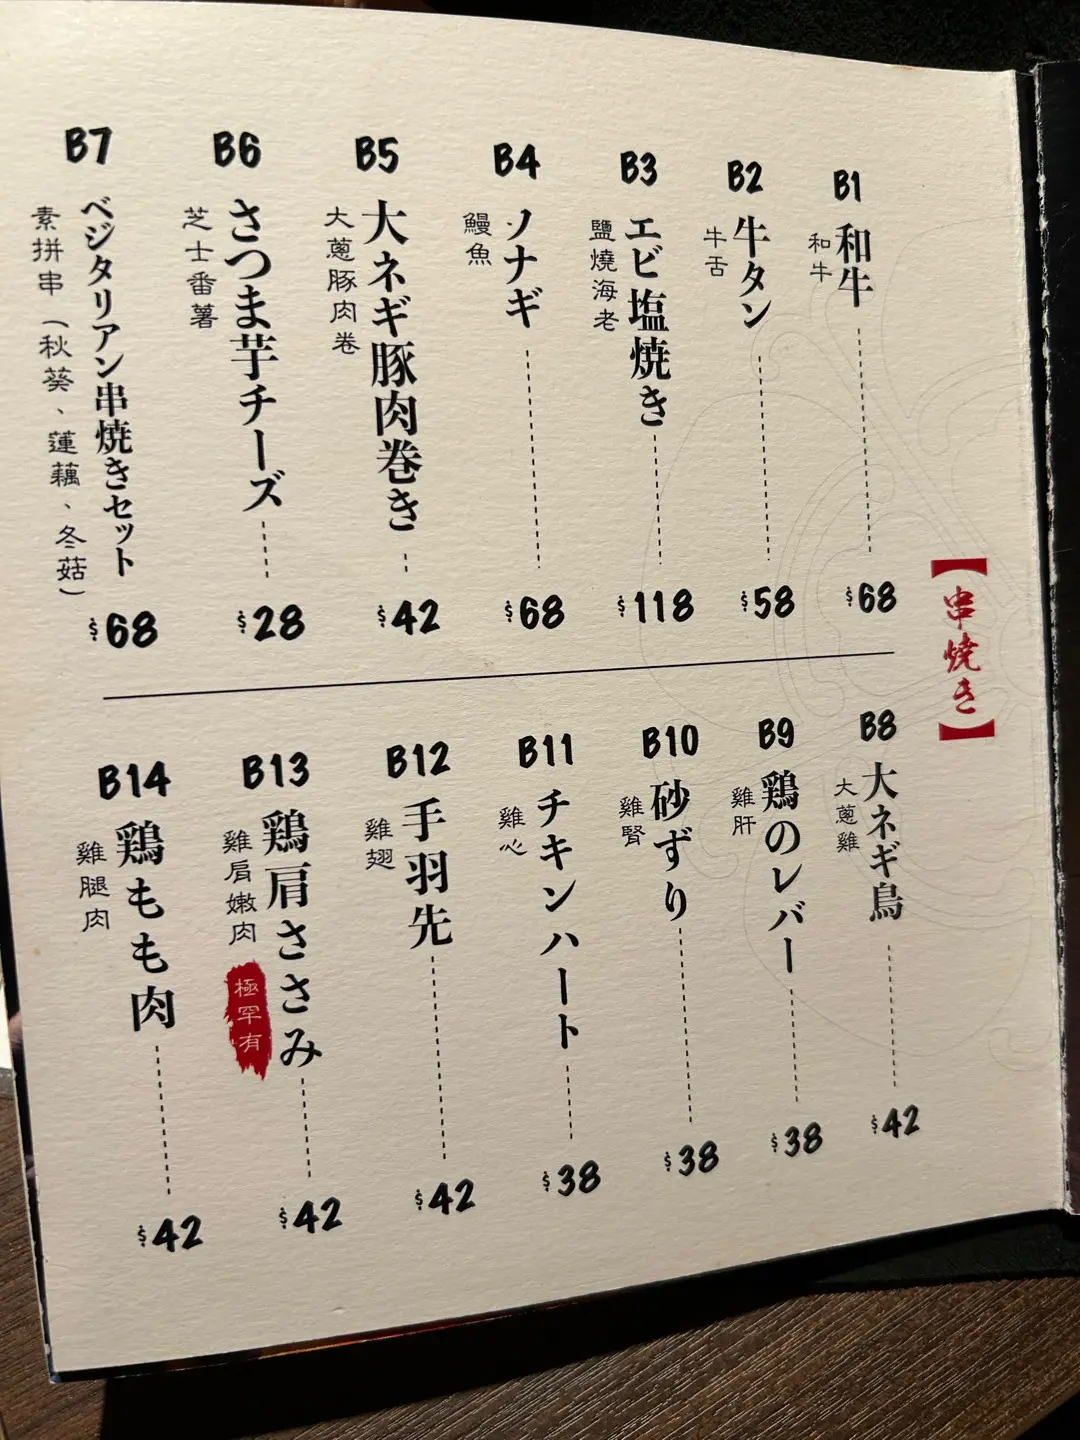 【串焼き】
B1
和牛
和牛
$68
B2
牛タン
牛舌
$58
B3
エビ塩焼き
鹽燒海老
$118
B4
ソナギ
鰻魚
$68
B5
大ネギ豚肉巻き
大蔥豚肉卷
$42
B6
さつま芋チーズ
芝士番薯
$28
B7
ベジタリアン串焼きセット
素拼串(秋葵、蓮藕、冬菇)
$68
B8
大ネギ鳥
大蔥雞
$42
B9
鶏のレバー
雞肝
$38
B10
砂ずり
雞腎
$38
B11
チキンハート
雞心
$38
B12
手羽先
雞翅
$42
B13
鶏肩ささみ
雞肩嫩肉
極罕有
$42
B14
鶏もも肉
雞腿肉
$42